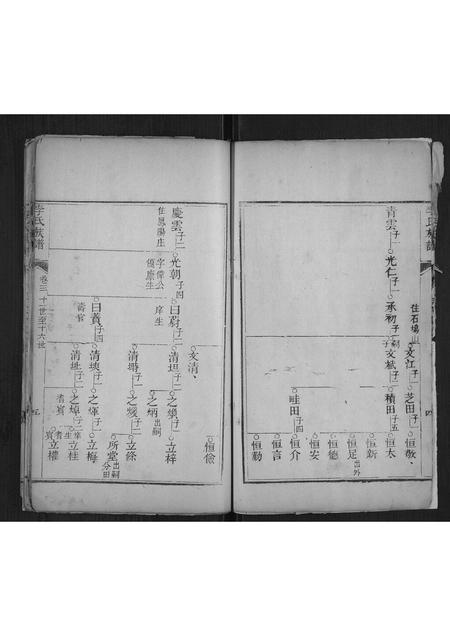 李氏族譜
青雲 子一
光仁 子一
承初 子一 嗣子
住石塢山
文江 子一
芝田 子一
恒敬、
文斌 子一
積田 子五
恒太
恒新
恒足 出外
恒德
恒安
畦田 子四
恒介
恒言
恒勤
四
慶雲 子二
住恩陽庄
光朝 子四
字偉公
優廩生
曰蔚 子二
庠生
曰賁 子四
壽官
文清、
清坦 子二
清
清
清
之煥 子一
之炳 出嗣
之煖 子二
之渾 子一
之焯 子二
耆賓
恒儉
立梓
立條
所堂 出嗣 分田
立梅
立桂
立權
李氏族譜
卷三 十一世至十六世
五